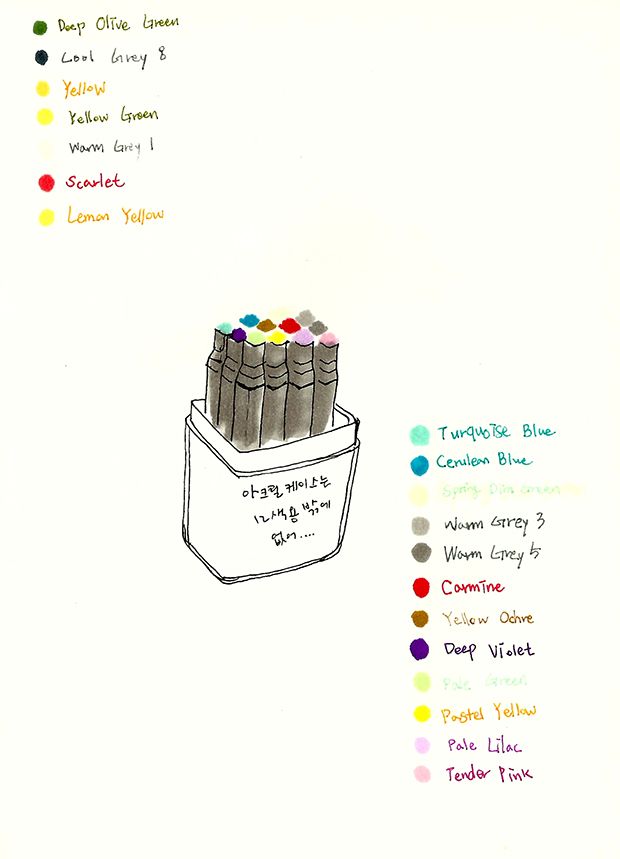 Deep Olive Green
Cool Grey 8
Yellow
Yellow Green
Warm Grey 1
Scarlet
Lemon Yellow
아크릴 케이스는
12색용 밖에
없어....
Turquoise Blue
Cerulean Blue
Spring Dim Green
Warm Grey 3
Warm Grey 5
Carmine
Yellow Ochre
Deep Violet
Pale Green
Pastel Yellow
Pale Lilac
Tender Pink